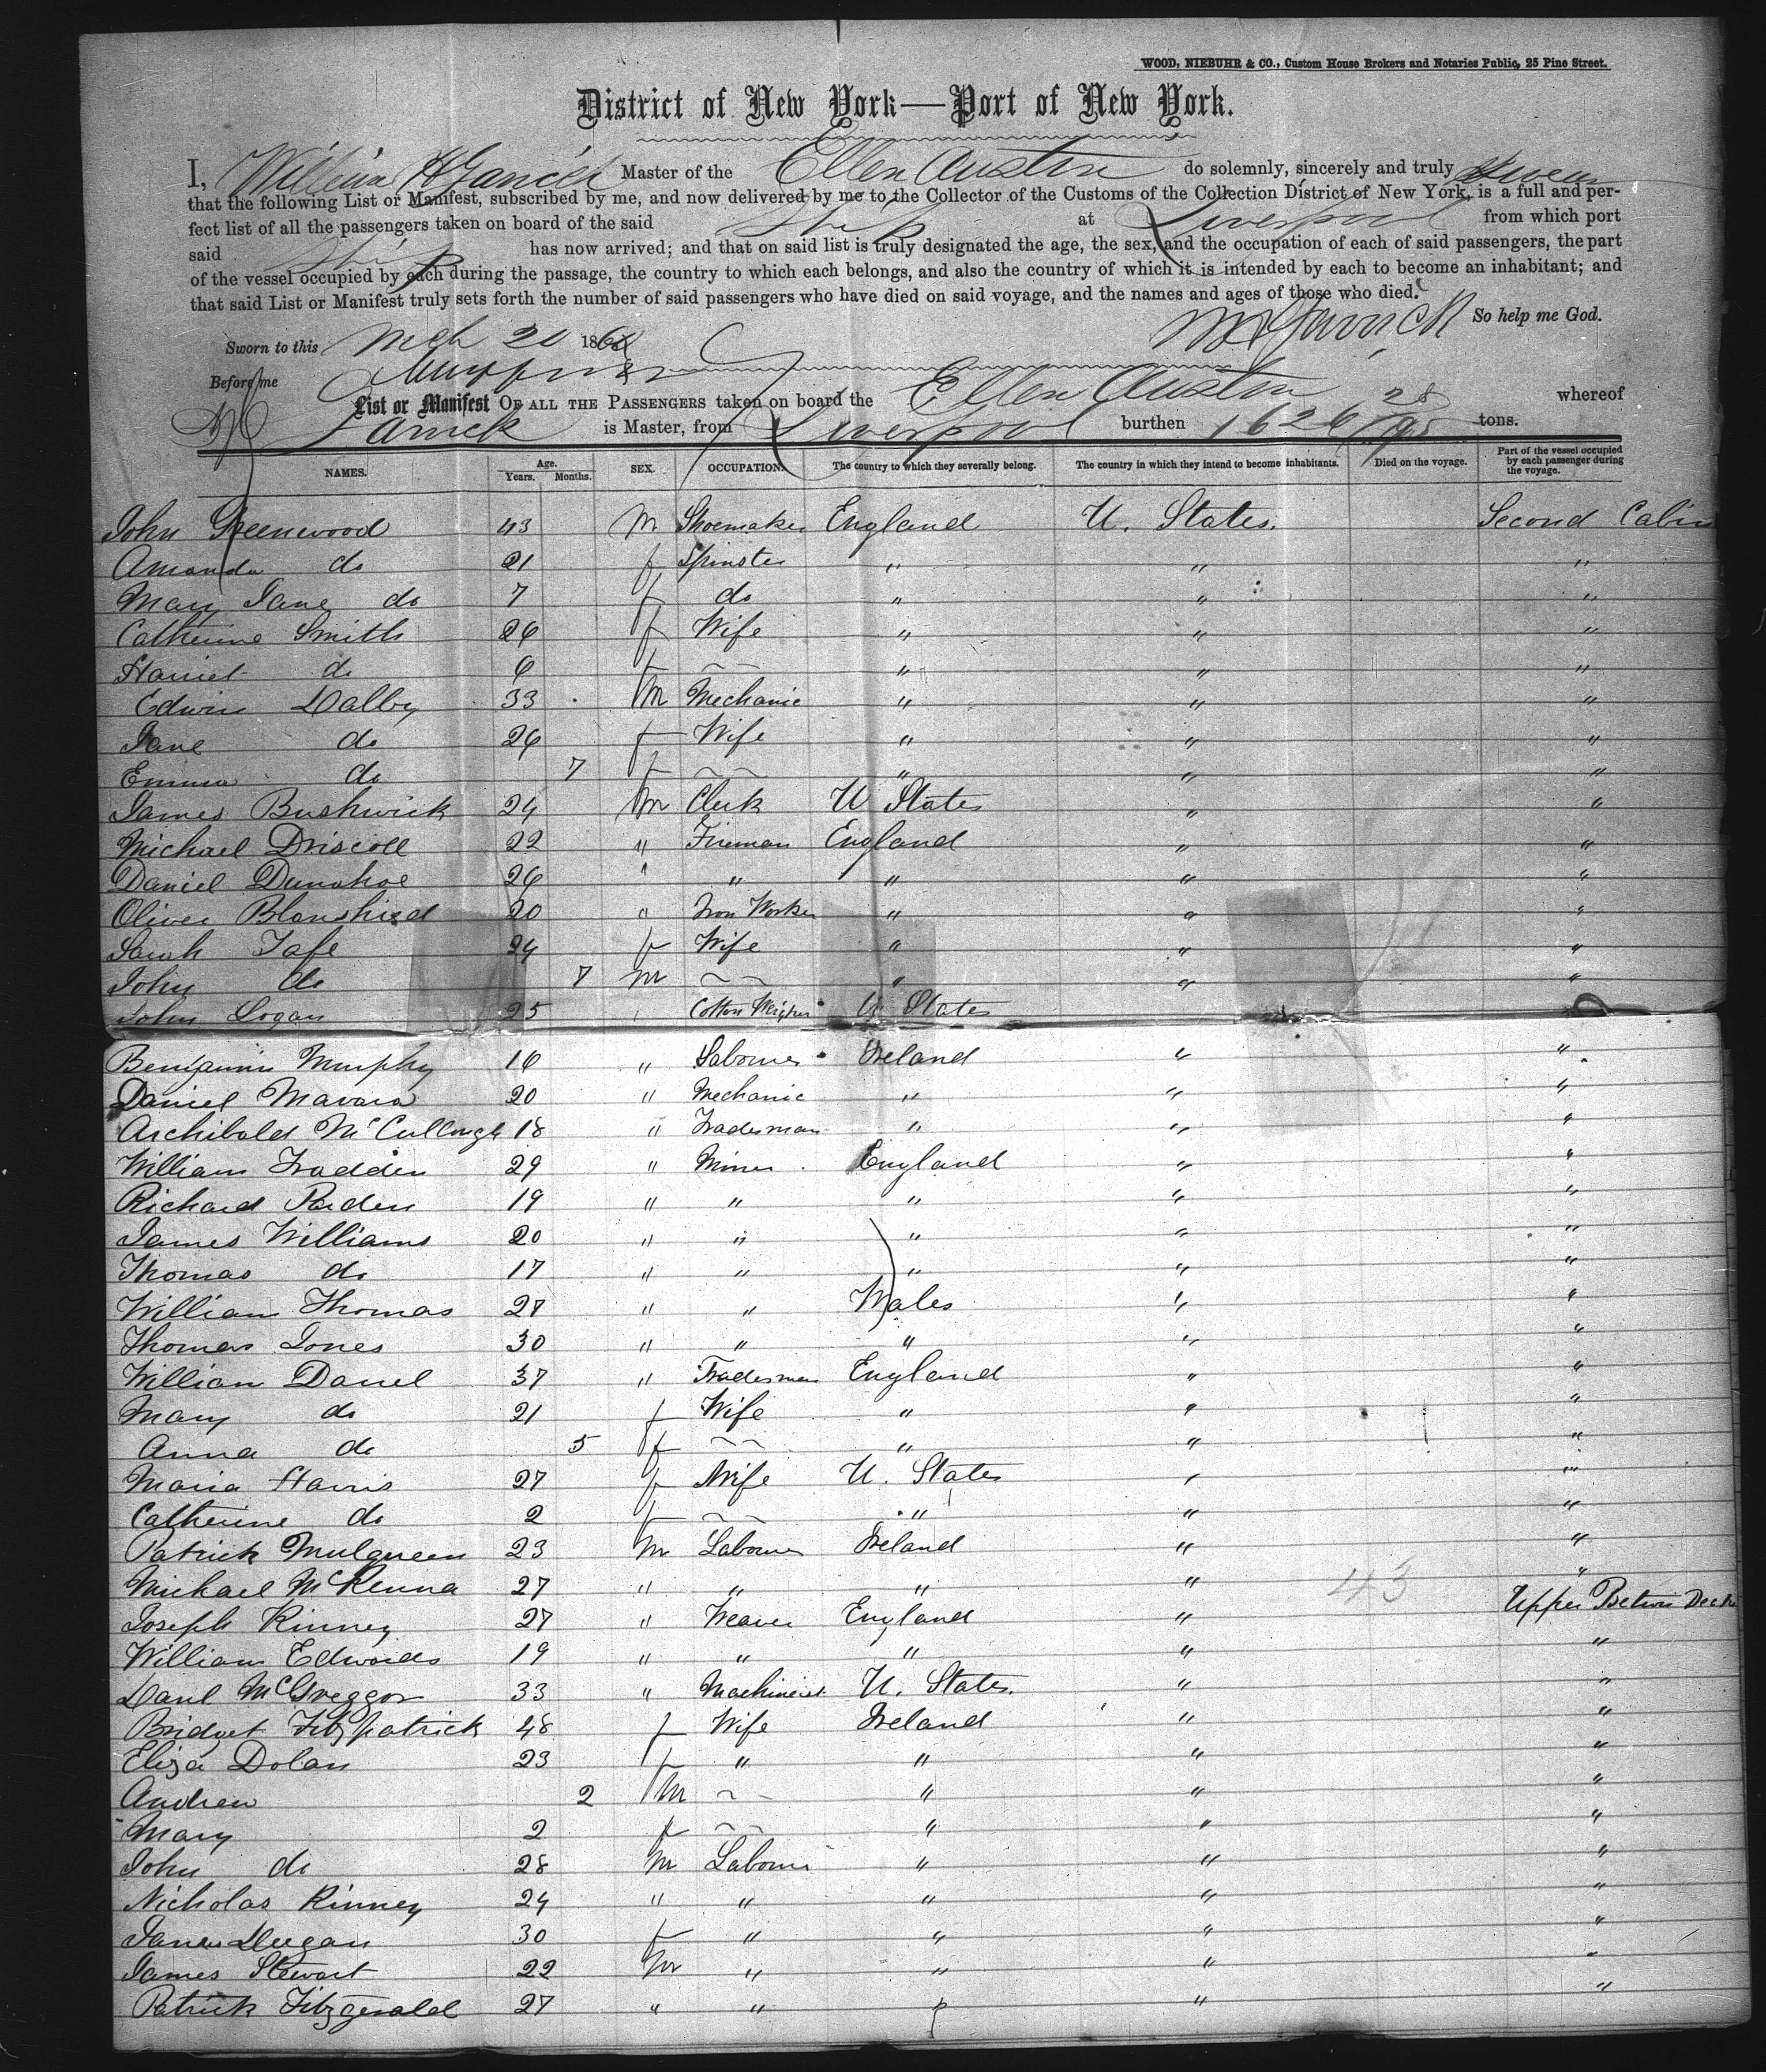 WOOD, NIEBUHR & CO., Custom House Brokers and Notaries Public, 25 Pine Street.
District of New York—Port of New York.
I, William H Garrick Master of the Ellen Austin do solemnly, sincerely and truly swear
that the following List or Manifest, subscribed by me, and now delivered by me to the Collector of the Customs of the Collection District of New York, is a full and per-
fect list of all the passengers taken on board of the said Ship at Liverpool from which port
said Ship has now arrived; and that on said list is truly designated the age, the sex, and the occupation of each of said passengers, the part
of the vessel occupied by each during the passage, the country to which each belongs, and also the country of which it is intended by each to become an inhabitant; and
that said List or Manifest truly sets forth the number of said passengers who have died on said voyage, and the names and ages of those who died.
WHGarrick So help me God.
Sworn to this Mch 20 1868
Before me
List or Manifest OF ALL THE PASSENGERS taken on board the Ellen Austin whereof
Garrick is Master, from Liverpool burthen 1626 28/95 tons.
NAMES. Age. Years. Months. SEX. OCCUPATION. The country to which they severally belong. The country in which they intend to become inhabitants. Died on the voyage. Part of the vessel occupied by each passenger during the voyage.
John Greenwood 43 M Shoemaker England U. States. Second Cabin
Amanda do 21 f Spinster " " "
Mary Jane do 7 f do " " "
Catherine Smith 26 f Wife " " "
Harriet do 6 f — — " " "
Edwin Dalby 33 M Mechanic " " "
Jane do 26 f Wife " " "
Emma do 7 f — — " " "
James Bushwick 24 M Clerk U States " "
Michael Driscoll 22 " Fireman England " "
Daniel Donahoe 26 " " " " "
Oliver Blanshird 20 " Iron Worker " " "
Sarah Tafe 24 f Wife " " "
John do 7 M — — " " "
John Logan 25 " Cotton Weigher U States
Benjamin Murphy 16 " Labourer Ireland " "
Daniel Mavara 20 " Mechanic " " "
Archibald McCullough 18 " Tradesman " " "
William Tradden 29 " Miner England " "
Richard Parden 19 " " " " "
James Williams 20 " " " " "
Thomas do 17 " " " " "
William Thomas 27 " " Wales " "
Thomas Jones 30 " " " " "
William Daniel 37 " Tradesman England " "
Mary do 21 f Wife " " "
Anna do 5 f — — " " "
Maria Harris 27 f Wife U. States " "
Catherine do 2 f — — " " "
Patrick Mulqueen 23 M Labourer Ireland " "
Michael McKenna 27 " " " " 43 "
Joseph Kinney 27 " Weaver England " Upper Betwn Decks
William Edwards 19 " " " " "
Danl McGreggor 33 " Machinist U. States. " "
Bridget Fitzpatrick 48 f Wife Ireland " "
Eliza Dolan 23 f " " " "
Andrew 2 M — — " " "
Mary 2 f — — " " "
John do 28 M Labourer " " "
Nicholas Kinney 24 " " " " "
Jane Dugan 30 f " " " "
James Stewart 22 M " " " "
Patrick Fitzgerald 27 " " " " "